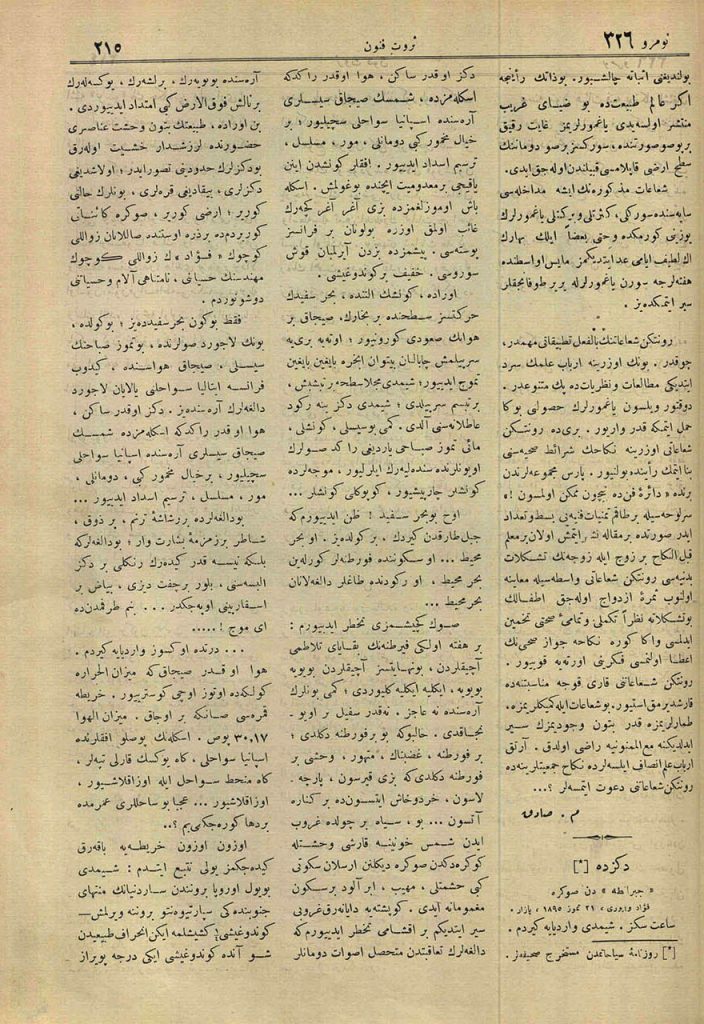 نومرو ٣٢٦
ثروت فنون
٢١٥
بولندیغنی اثباته چالشیور. بوذاتك رأینجه
اكر عالم طبیعت‌ده بو ضیای غریب
منتشر اولسه‌یدی یاغمورلریمز غایت رقیق
بر بوصوصورتنده ، سوركسز برصو دوماننك
سطح ارضی قاپلامسی قبیلندن اوله‌جق ایدی.
شعاعات مذكوره‌نك ایشه مداخله‌سی
سایه‌سنده سوركلی ، كثرتلی وبركتلی یاغمورلرك
یوزینی كورمكده و حتی بعضاً ایلك بهارك
اك لطیف ایامی عد ایتدیكمز مایس اواسطنده
هفته‌لرجه سورن یاغمورلرله بربر طوفانجقلر
سیر ایتمكده‌یز .
رونتكن شعاعاتنك بالفعل تطبیقاتی مهمدر ،
چوقدر . بونك اوزرینه ارباب علمك سرد
ایتدیكی مطالعات ونظریات‌ده پك متنوعدر .
دوقتور ویلسون یاغمورلرك حصولنی بوكا
حمل ایتمكه قدر واریور . بری‌ده رونتكن
شعاعاتی اوزرینه نكاحك شرائط صحیه‌سنی
بنا ایتمك رأینده بولنیور . پارس مجموعه‌لرندن
برنده « دائرهٔ فن‌ده بچون ممكن اولمسون !»
سرلوحه‌سیله برطاقم تمنیات فنیه‌یی بسط وتعداد
ایدر صورتده برمقاله نشر ایتمش اولان برمعلم
قبل النكاح بر زوج ایله زوجه‌نك تشكلات
بدنیه‌سی رونتكن شعاعاتی واسطه‌سیله معاینه
اولنوب ثمرهٔ ازدواج اوله‌جق اطفالك
بوتشكلاته نظراً تكملی وتمامیٔ صحتی تخمین
ایدلمسی واكا كوره نكاحه جواز صحی‌نك
اعطا اولنمسی فكرینی اورته‌یه قویبور .
رونتكن شعاعاتنی قاری قوجه مناسبتنه‌ده
قارشدیرمق استیور. بوشعاعات ایله كمیكلریمزه،
طمارلریمزه قدر بتون وجودیمزك سیر
ایدلدیكنه مع‌الممنونیه راضی اولدق . آرتق
ارباب علم انصاف ایلسه‌لرده نكاح جمعیتلرینه‌ده
رونتكن شعاعاتنی دعوت ایتمسه‌لر ؟...
م . صادق
دكزده [*]
« جبرالطه » دن صوكره
٢١ تموز ١٨٩٥ ، بازار .
ساعت سكز . شیمدی واردیایه كیردم .
[*] روزنامهٔ سیاحاتمدن مستخرج صحیفه‌لر .
دكز اوقدر ساكن ، هوا اوقدر راكدكه
اسكله‌مزده ، شمسك صیجاق سیسلری
آره‌سنده اسپانیا سواحلی سچیلیور ؛ بر
خیال مخمور كبی دومانلی ، مور ، مسلسل ،
ترسیم امتداد ایدییور . افقلر كونشدن اینن
یاقیجی بر معدومیت ایچنده بوغولمش . اسكله
باش اوموزلغمزده بزی آغر آغر كچه‌رك
غائب اولمق اوزره بولونان بر فرانسز
پوسته‌سی . پیشمزده بزدن آیرلمیان قوش
سوروسی . خفیف بر كوندوغیشی .
اوراده ، كونشك التنده ، بحر سفیدك
حركتسز سطحنده بر بخارك، صیجاق بر
هوایك صعودی كورونیور ؛ اوته‌یه بری‌یه
سرپیلمش چابالان بیتوان ابخره بایغین بایغین
تموج ایدییور؛ شیمدی مجلا سطحه برنشیش ،
بر تبسم سرپیلدی ؛ شیمدی دكز ینه ركود
عاطلانه‌سنی آلدی. كمی بوسیسلی ، كونشلی ،
مائی تموز صباحی یاردیغی راكد صولرك
اویونلرنده سنده‌لیه‌رك ایلرلیور ، موجه‌لرده
كونشلر چارپیشیور ، كوپوكلی كونشلر ...
اوح بو بحر سفید ! ظن ایدییورم‌كه
جبل طارقدن كیردك . بر كوله‌دیز . او بحر
محیط ... او سكوننده فورطنه‌لر كورله‌ین
بحر محیط . او ركودنده طاغلر دالغه‌لانان
بحر محیط ...
صوك كچیشمزی تخطر ایدییورم :
بر هفته اولكی فیرطنه‌نك بقایای تلاطمی
آچیقلردن ، بونهایتسز آچیقلردن بویویه
بویویه ، ایكلیه ایكلیه كلیوردی ؛ كمی بونلرك
آره‌سنده نه عاجز . نه‌قدر سفیل بر اویو-
نجاقدی . حالبوكه بو برفورطنه دكلدی ؛
بر فورطنه ، غضبناك ، متهور ، وحشی بر
فورطنه دكلدی‌كه بزی قیرسون ، پارچه .
لاسون ، خردوخاش ایتسون‌ده بركناره
آتسون ... بو ، سیاه بر چولده غروب
ایدن شمس خونینه قارشی وحشتله
كوكره‌دكدن صوكره دیكلنن ارسلان سكوتی
كبی حشمتلی ، مهیب ، ابر آلود برسكون
مغمومانه ایدی. كوپشته‌یه دایانه‌رق غروبی
سیر ایتدیكم بر اقشامی تخطر ایدییورم‌كه
دالغه‌لرك تعاقبندن متحصل اصوات دومانلر
آره‌سنده بویویه‌رك ، برلشه‌رك ، یوكسه‌له‌رك
برنالش فوق‌الارض كبی امتداد ایدییوردی .
بن اوراده ، طبیعتك بتون وحشت عناصری
حضورنده لرزشدار خشیت اوله‌رق
بودكزلرك حدودینی تصور ایدر؛ اولاشدیغی
دكزلری ، بیقادیغی قره‌لری ، بونلرك حالنی
كوریر ؛ ارضی كوریر ، صوكره كائناتی
كوریردم‌ده بر ذره اوستنده صاللانان زواللی
كوچوك «فؤاد» ك زواللی كوچوك
مهندسنك حسیاتی ، نامتناهی آلام وحسیاتنی
دوشونوردم .
فقط بوكون بحر سفیدده‌یز ؛ بوكولده ،
بونك لاجورد صولرنده ، بوتموز صباحنك
سیسلی ، صیجاق هواسنده ، كیدوب
فرانسه ایتالیا سواحلی یالایان لاجورد
دالغه‌لرك آره‌سنده‌یز . دكز اوقدر ساكن ،
هوا اوقدر راكدكه اسكله‌مزده شمسك
صیجاق سیسلری آره‌سنده اسپانیا سواحلی
سچیلیور ، برخیال مخمور كبی ، دومانلی ،
مور ، مسلسل ، ترسیم امتداد ایدییور ...
بودالغه‌لرده بررشاشهٔ ترنم ، بر ذوق ،
شاطر بر زمزمهٔ بشارت وار ؛ بودالغه‌لركه
بلكه نیسه قدر كیده‌رك رنكلی بر دكز
البسه‌سنی ، بلور برجفت دیزی ، بیاض بر
اسفارپینی اوپه‌جكدر ... بنم طرفمدن‌ده
ای موج ! .....
... درنده اوكسوز واردیایه كیردم .
هوا اوقدر صیجاق‌كه میزان الحراره
كولكده اوتوز اوچی كوستریبور . خریطه
قمره‌سی صانكه بر اوجاق . میزان الهوا
٣٠,١٧ پوص . اسكله‌نك بوصلو افقلرنده
اسپانیا سواحلی ، كاه یوكسك قارلی تپه‌لر ،
كاه منحط سواحل ایله اوزاقلاشیور ،
اوزاقلاشیور ... عجبا بوساحللری عمرمده
بردها كوره‌جكمی‌یم ؟..
اوزون اوزون خریطه‌یه باقه‌رق
كیده‌جكمز یولی تتبع ایتدم : شیمدی
بویول اوروپا بروننندن ساردنیانك منتهای
جنوبنده‌كی سپارتیوه‌نتو بروننه ویرلمش—
كوندوغیشی؛ كشیشلمه ایكن انحراف طبیعیدن
شو آنده كوندوغیشی ایكی درجه پویراز